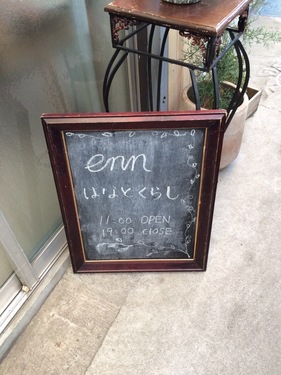 enn
はなとくらし
11:00 OPEN
19:00 CLOSE